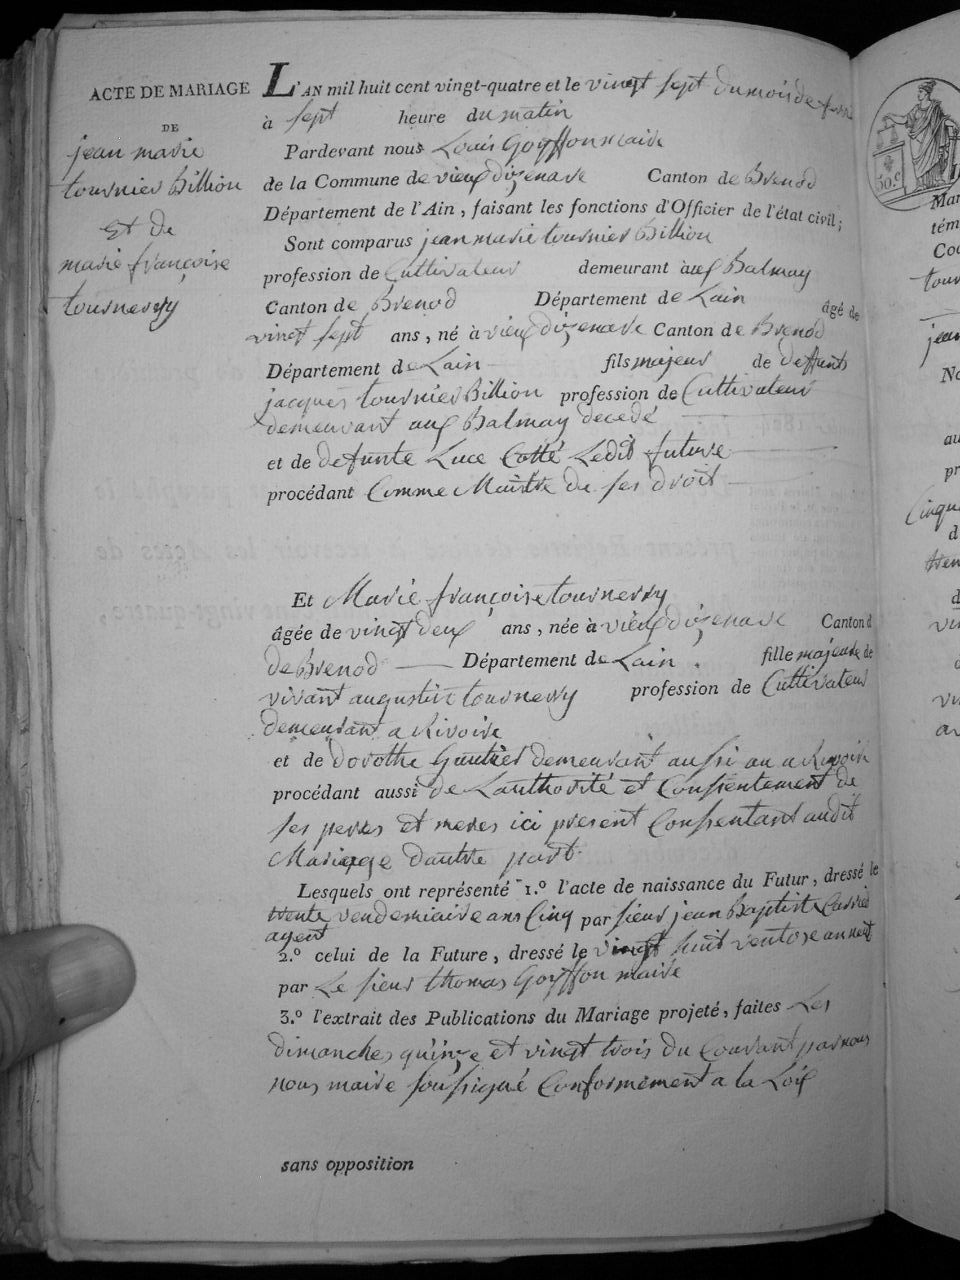 ACTE DE MARIAGE
DE
jean marie
tournier Billion
Et de
marie françoise
tournerry
L'AN mil huit cent vingt-quatre et le vingt sept du mois de
à sept heure du matin
Pardevant nous Louis Goyffon maire
de la Commune de vieux dizenave Canton de Brenod
Département de l'Ain, faisant les fonctions d'Officier de l'état civil;
Sont comparus jean marie tournier Billion
profession de Cultivateur demeurant aux Balmay
Canton de Brenod Département de Lain âgé de
vingt sept ans, né à vieux dizenave Canton de Brenod
Département de Lain fils majeur de deffunts
jacques tournier Billion profession de Cultivateur
demeurant aux Balmay decedé
et de defunte Luce Cotté Ledit future
procédant Comme Maitre de ses droit
Et Marie françoise tournerry
âgée de vingt deux ans, née à vieux dizenave Canton d
de Brenod Département de Lain. fille majeure de
vivant augustin tournerry profession de Cultivateur
demeurant a Rivoire
et de dorothe Gautier demeurant aussi au a Rivoire
procédant aussi de Lauthorité et Consentement de
ses peres et meres ici present Consentant audit
Mariage dautre part.
Lesquels ont représenté 1.º l'acte de naissance du Futur, dressé le
trente vendemiaire ans Cinq par sieur jean Baptiste Carrié
agent
2.º celui de la Future, dressé le vingt huit ventose an neuf
par Le sieur thomas Goyffon maire
3.º l'extrait des Publications du Mariage projeté, faites Les
dimanches quinze et vingt trois du Courant par nous
nous maire soussigné Conformement a la Loix
sans opposition
50.c
Mar
tém
Co
tour
jean
No
au
pr
Cinqu
d
tren
d
vi